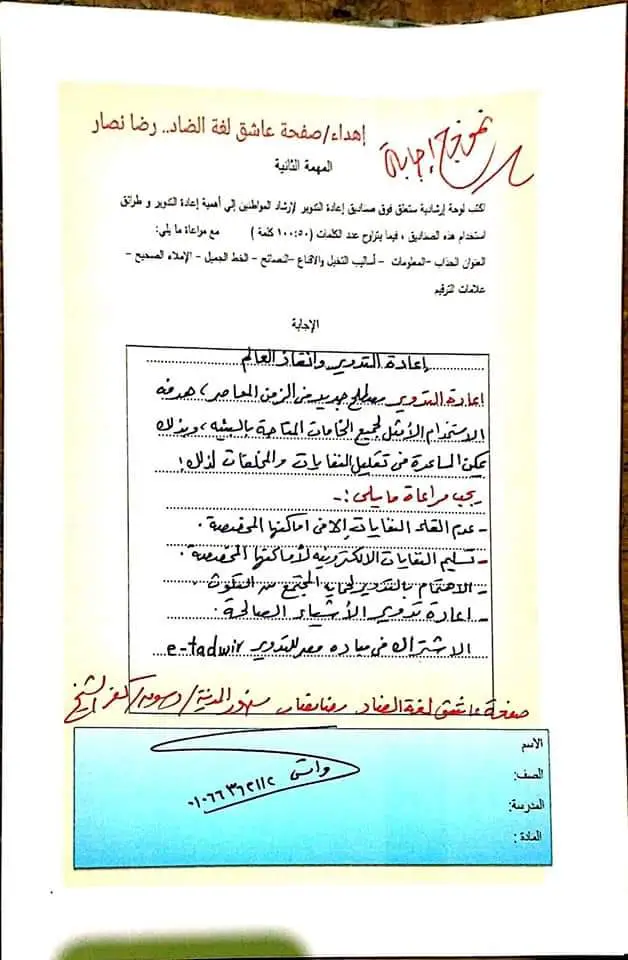 إهداء/صفحة عاشق لغة الضاد.. رضا نصار
نموذج إجابة
المهمة الثانية
اكتب لوحة إرشادية ستعلق فوق صناديق إعادة التدوير لإرشاد المواطنين إلي أهمية إعادة التدوير و طرائق
استخدام هذه الصناديق ، فيما يتراوح عدد الكلمات (٥٠:١٠٠ كلمة ) مع مراعاة ما يلي:
العنوان الجذاب –المعلومات – أساليب التخيل والاقناع –النصائح – الخط الجميل – الإملاء الصحيح –
علامات الترقيم
الإجابة
إعادة التدوير وانقاذ العالم
إعادة التدوير مصطلح جديد من الزمن المعاصر، هدفه
الاستخدام الأمثل لجميع الخامات المتاحة بالبيئه، وبذلك
يمكن المساعدة فى تقليل النفايات والمخلفات لذلك؛
يجب مراعاة مايلى :-
- عدم القاء النفايات إلا فى اماكنها المخصصة .
- تسليم النفايات الالكترونيه لأماكنها المخصصة .
- الاهتمام بالتدوير لحمايه المجتمع من التلوث .
- اعادة تدوير الأشياء الصالحة .
الاشتراك فى مبادره مصر للتدوير e-tadwir
صفحة عاشق لغة الضاد رضا نصار سنهور المدينة/ دسوق/ كفر الشيخ
الاسم
الصف:
واتس ٠١٠٦٦٣٦٢١١٢
المدرسة:
المادة :